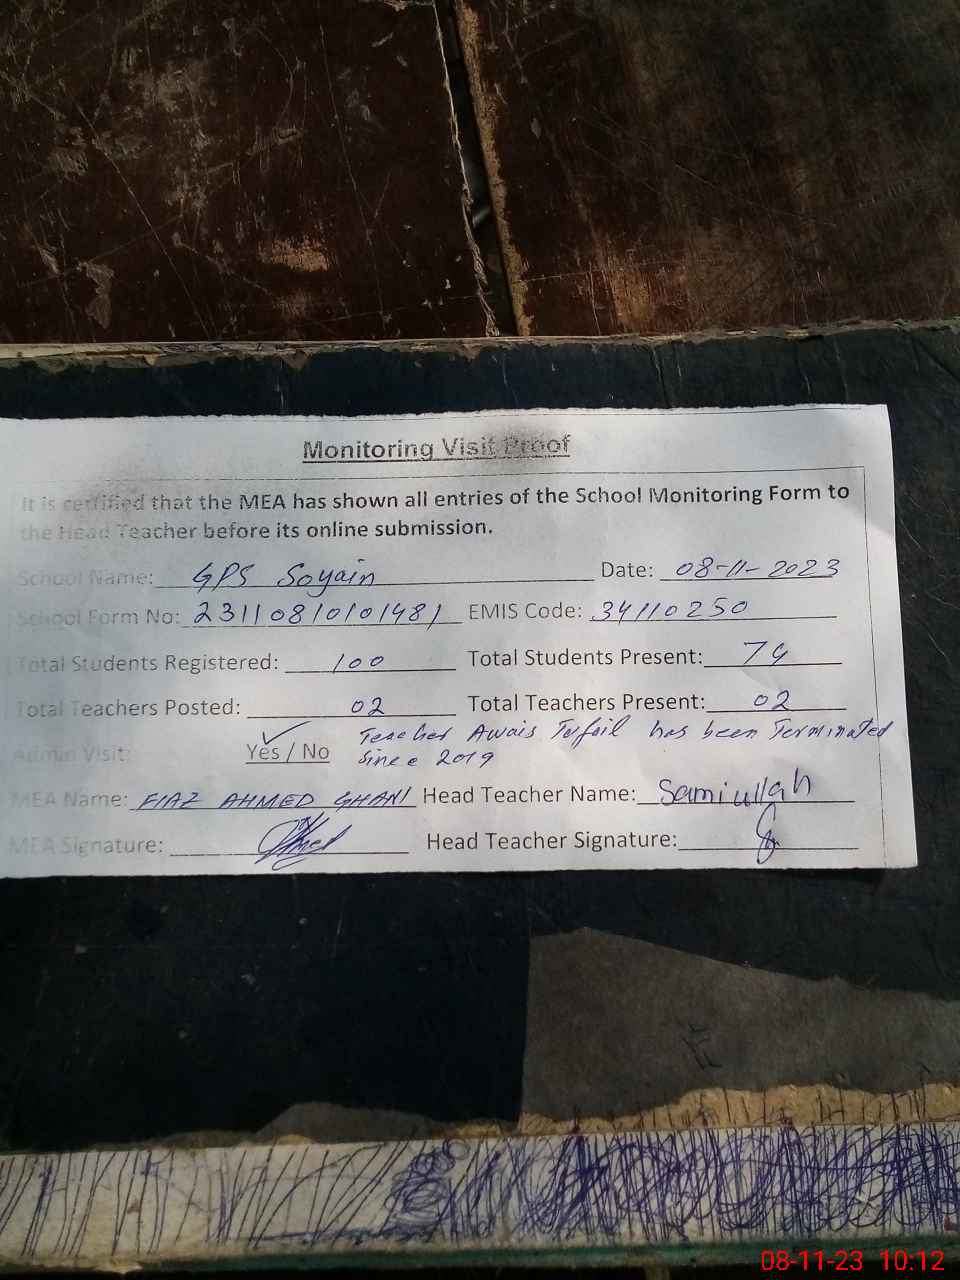 Monitoring Visit Proof
It is certified that the MEA has shown all entries of the School Monitoring Form to
the Head Teacher before its online submission.
School Name: GPS Soyain Date: 08-11-2023
School Form No: 23110810101481 EMIS Code: 34110250
Total Students Registered: 100 Total Students Present: 79
Total Teachers Posted: 02 Total Teachers Present: 02
Admin Visit: Yes / No Teacher Awais Tufail has been Terminated
since 2019
MEA Name: FIAZ AHMED GHANI Head Teacher Name: Samiullah
MEA Signature: Head Teacher Signature:
08-11-23 10:12